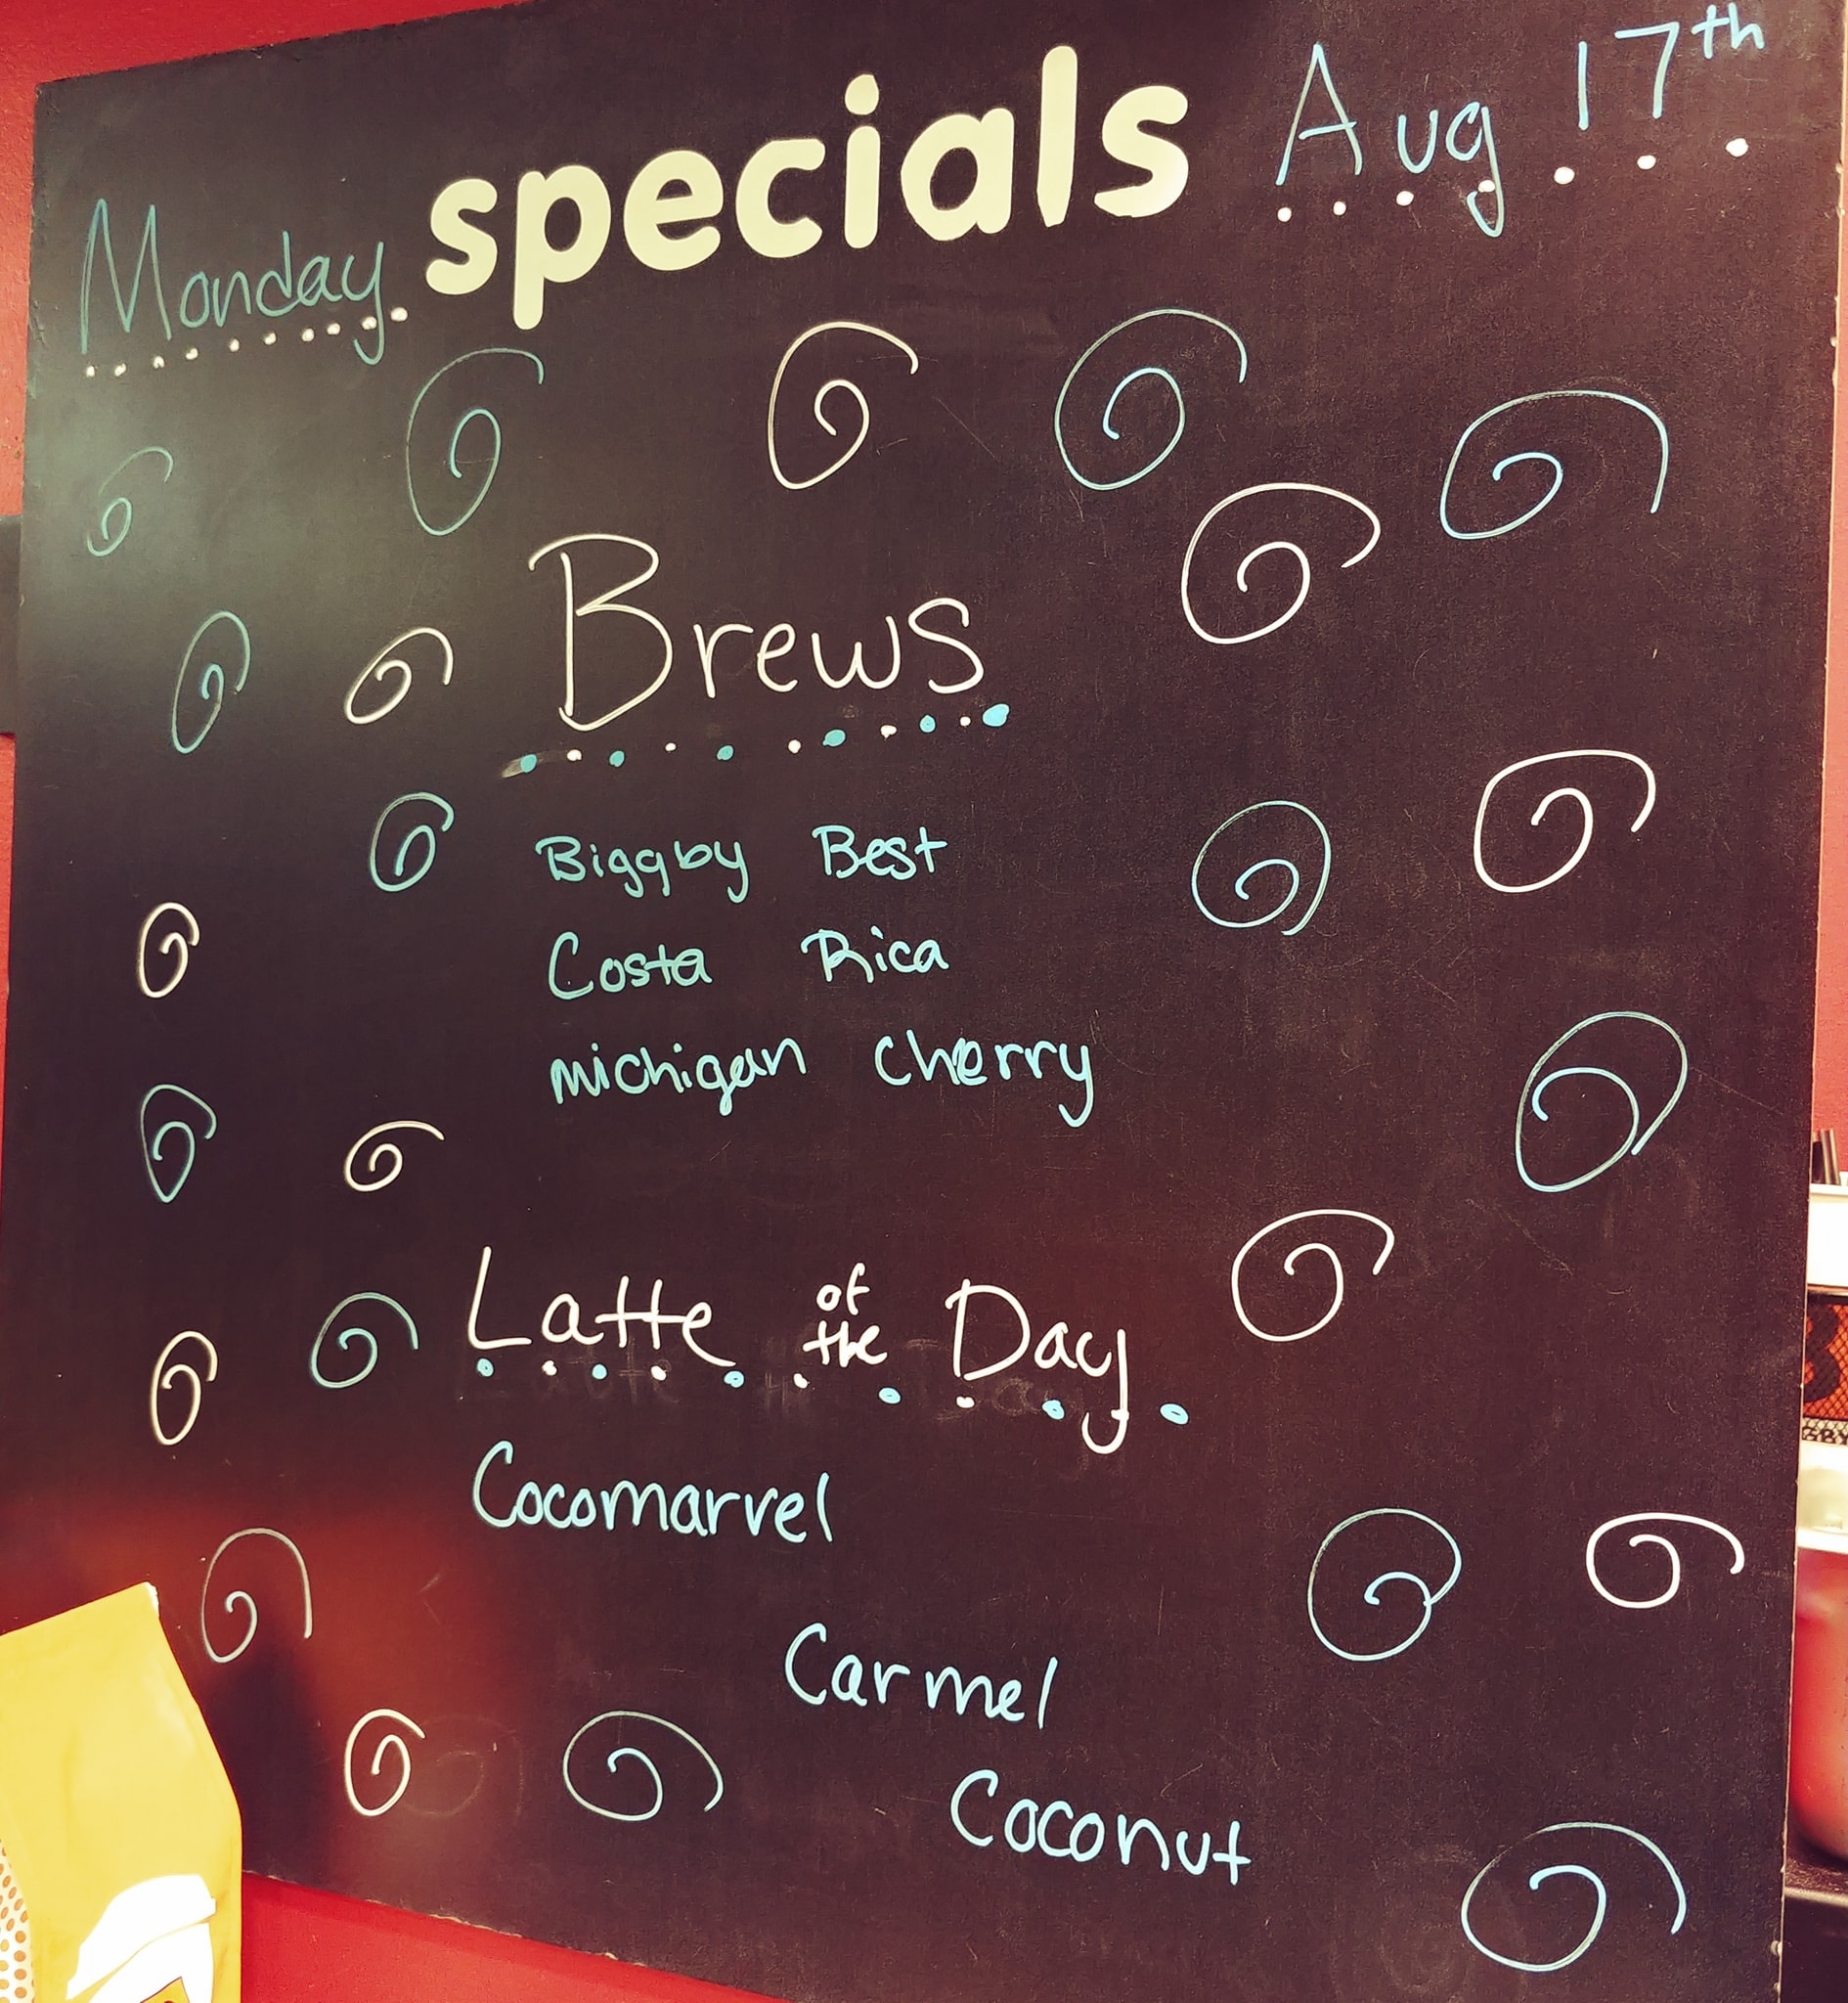 Monday specials Aug 17th
Brews
Biggby Best
Costa Rica
michigan cherry
Latte of the Day
Cocomarvel
Carmel
Coconut